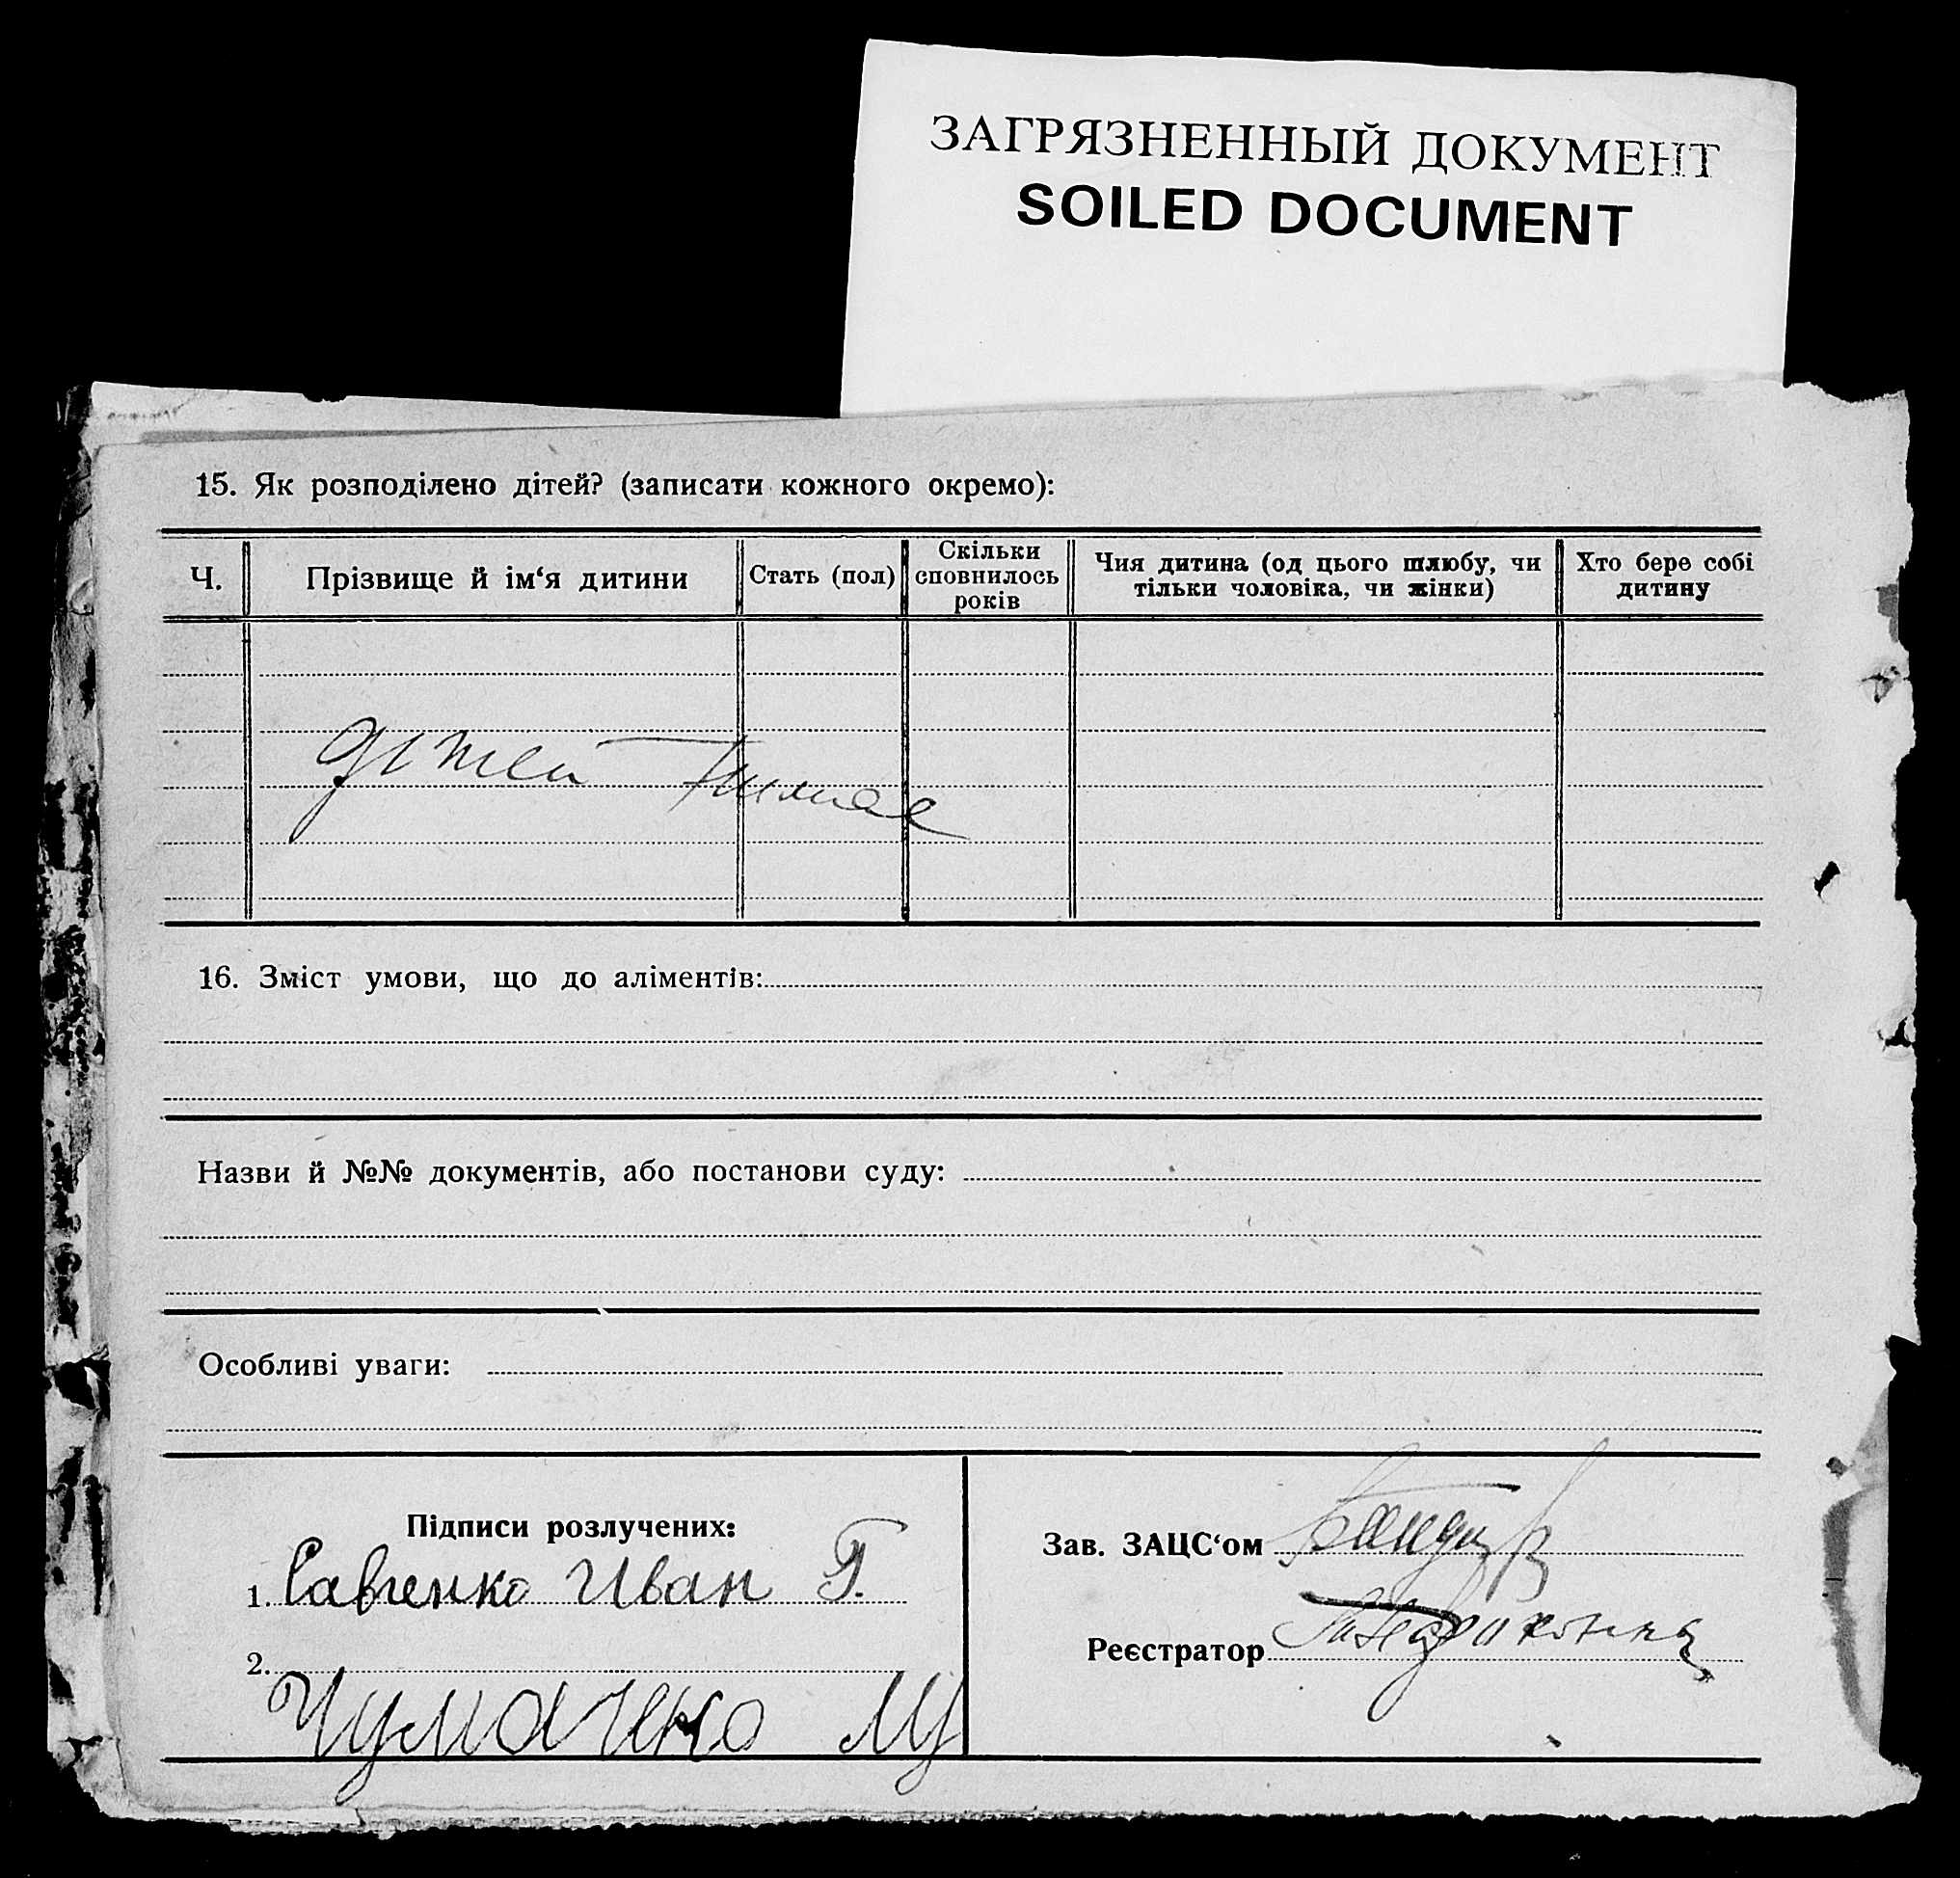 ЗАГРЯЗНЕННЫЙ ДОКУМЕНТ
SOILED DOCUMENT
15. Як розподілено дітей? (записати кожного окремо):
Ч.
Прізвище й ім‘я дитини
Стать (пол)
Скільки сповнилось років
Чия дитина (од цього шлюбу, чи тільки чоловіка, чи жінки)
Хто бере собі дитину
дітей
16. Зміст умови, що до аліментів:
Назви й №№ документів, або постанови суду:
Особливі уваги:
Підписи розлучених:
1. Савченко Иван Г.
2.
Чумаченко
Зав. ЗАЦС‘ом
Реєстратор